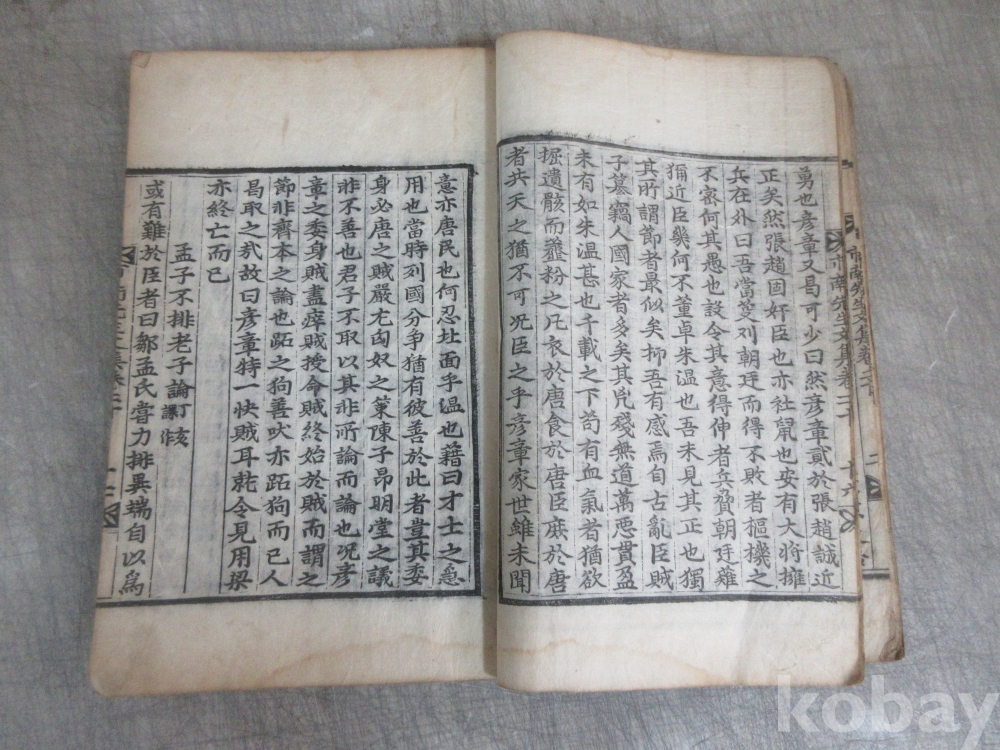 市南先生文集卷之
勇也彦章又曷可少曰然彦章貳於張趙誠近
正矣然張趙固奸臣也亦社鼠也安有大將擁
兵在外曰吾當芟刈朝廷而得不敗者樞機之
不密何其愚也設令其意得伸者兵變朝廷難
獨近臣幾何不董卓朱溫也吾未見其正也獨
其所謂節者最似矣抑吾有感焉自古亂臣賊
子簒竊人國家者多矣其兇殘無道萬惡貫盈
未有如朱溫甚也千載之下苟有血氣者猶欲
掘遺骸而虀粉之凡衣於唐食於唐臣庶於唐
者共天之猶不可况臣之乎彦章家世雖未聞
意亦唐民也何忍北面乎溫也藉曰才士之急
用也當時列國分爭猶有彼善於此者豈其委
身必唐之賊嚴尤匈奴之策陳子昂明堂之議
非不善也君子不取以其非所論而論也况彦
章之委身賊盡瘁賊授命賊終始於賊而謂之
節非齊本之論也跖之狗善吠亦跖狗而已人
曷取之㢤故曰彦章特一快賊耳就令見用梁
亦終亡而已
孟子不排老子論 丁亥 課作
或有難於臣者曰鄒孟氏嘗力排異端自以爲
kobay